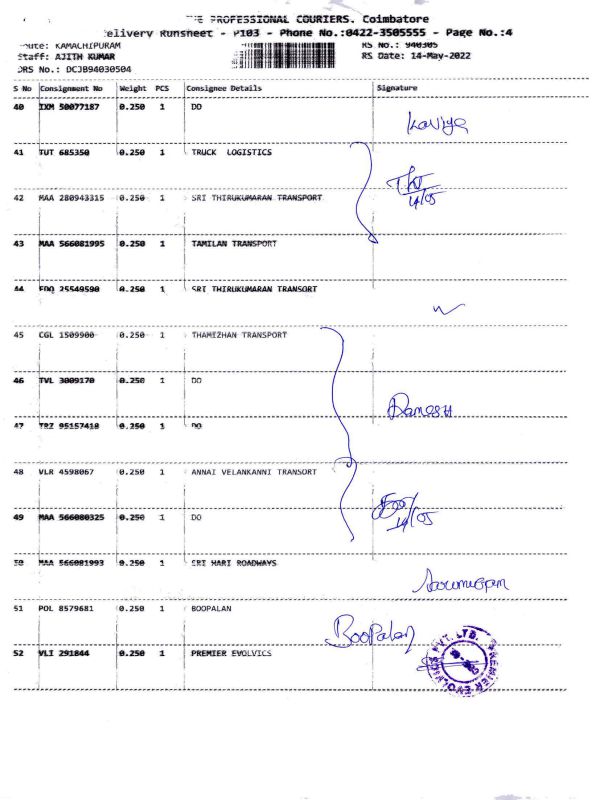 THE PROFESSIONAL COURIERS. Coimbatore
Delivery Runsheet - P103 - Phone No.:0422-3505555 - Page No.:4
Route: KAMACHIPURAM RS No.: 940305
Staff: AJITH KUMAR RS Date: 14-May-2022
DRS No.: DCJB94030504
S No Consignment No Weight PCS Consignee Details Signature
40 IXM 50077187 0.250 1 DO
Kaviya
41 TUT 685350 0.250 1 TRUCK LOGISTICS
14/05
42 MAA 280943315 0.250 1 SRI THIRUKUMARAN TRANSPORT
43 MAA 566081995 0.250 1 TAMILAN TRANSPORT
44 EDQ 25549590 0.250 1 SRI THIRUKUMARAN TRANSORT
45 CGL 1509900 0.250 1 THAMIZHAN TRANSPORT
46 TVL 3009170 0.250 1 DO
Ramesh
47 TRZ 95157418 0.250 1 DO
48 VLR 4598067 0.250 1 ANNAI VELANKANNI TRANSORT
49 MAA 566080325 0.250 1 DO
14/05
50 MAA 566081993 0.250 1 SRI HARI ROADWAYS
Aarumugam
51 POL 8579681 0.250 1 BOOPALAN
BooPalan
52 VLI 291844 0.250 1 PREMIER EVOLVICS
PREMIER EVOLVICS PVT. LTD.